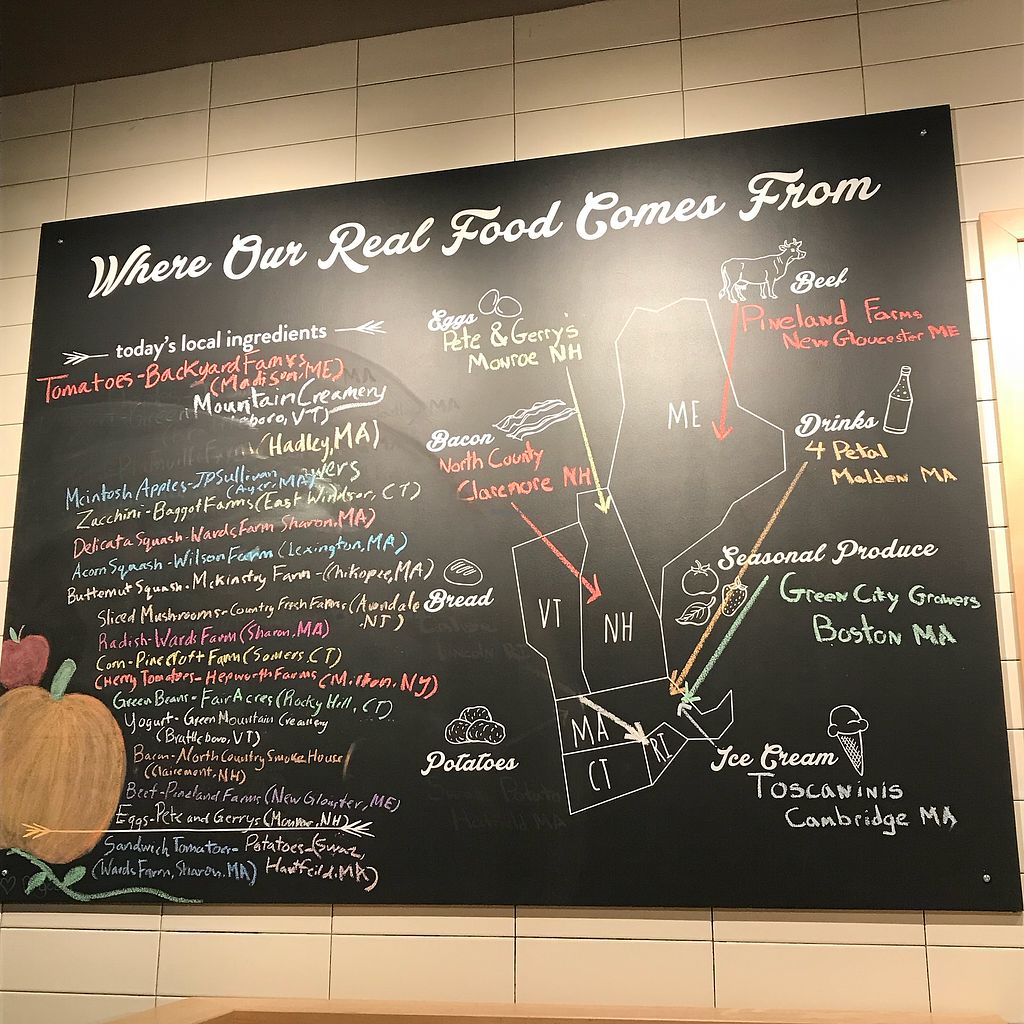 Where Our Real Food Comes From
today's local ingredients
Tomatoes-Backyard Farms
(Madison, ME)
Mountain Creamery
boro, VT)
(Hadley, MA)
wers
Mcintosh Apples-JPSullivan
(Ayer, MA)
Zacchini-Baggott Farms (East Windsor, CT)
Delicata Squash-Wards Farm Sharon, MA)
Acorn Squash-Wilson Farm (Lexington, MA)
Butternut Squash-Mckinstry Farm-(Chikopee, MA)
Sliced Mushrooms-Country Fresh Farms (Avondale
NJ)
Radish-Wards Farm (Sharon, MA)
Corn-Pinecroft Farm (Somers, CT)
Cherry Tomatoes-Hepworth Farms (Milton, NY)
Green Beans-Fair Acres (Rocky Hill, CT)
Yogurt-Green Mountain Creamery
(Brattleboro, VT)
Bacon-North Country Smoke House
(Clairemont, NH)
Beef-Pineland Farms (New Glouster, ME)
Eggs-Pete and Gerrys (Monroe, NH)
Sandwich Tomatoes-
(Wards Farm, Sharon, MA)
Potatoes-(Swaz,
Hartfeild, MA)
Eggs
Pete & Gerry's
Monroe NH
Bacon
North County
Claremore NH
Bread
Potatoes
ME
VT
NH
MA
CT
RI
Beef
Pineland Farms
New Gloucester ME
Drinks
4 Petal
Malden MA
Seasonal Produce
Green City Growers
Boston MA
Ice Cream
Toscaninis
Cambridge MA